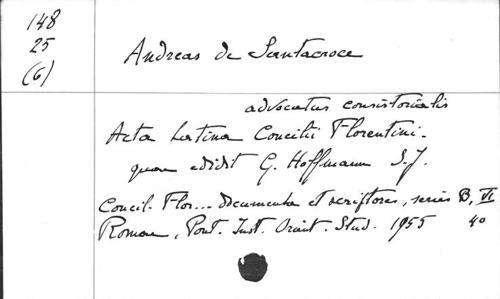 148
25
(6)
Andreas de Santacroce
advocatus consistorialis
Acta Latina Concilii Florentini.
quae edidit G. Hoffmann S.J.
Concil. Flor... documenta et scriptores, series B, VI
Romae, Pont. Inst. Orient. Stud. 1955 40